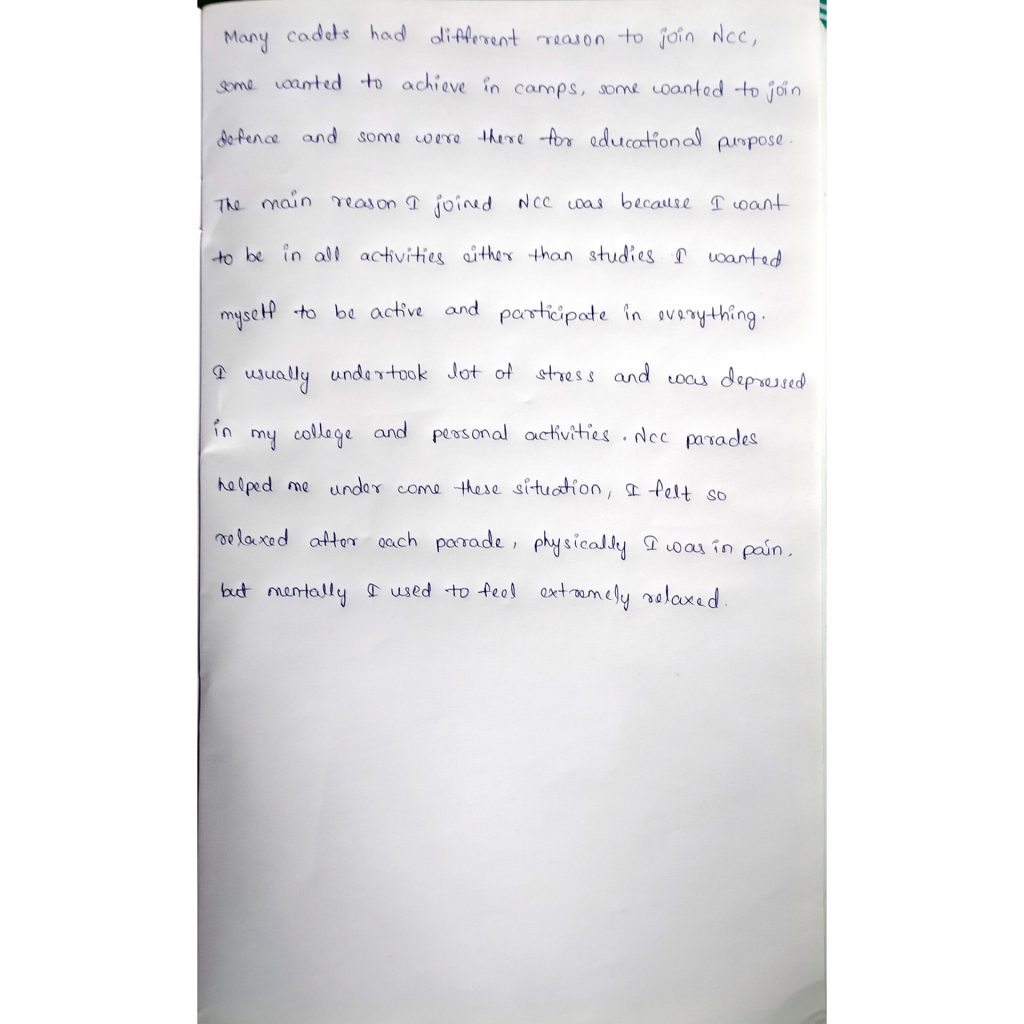 Many cadets had different reason to join Ncc,
some wanted to achieve in camps, some wanted to join
defence and some were there for educational purpose.
The main reason I joined NCC was because I want
to be in all activities either than studies I wanted
myself to be active and participate in everything.
I usually undertook lot of stress and was depressed
in my college and personal activities. Ncc parades
helped me under come these situation, I felt so
relaxed after each parade, physically I was in pain.
but mentally I used to feel extremely relaxed.